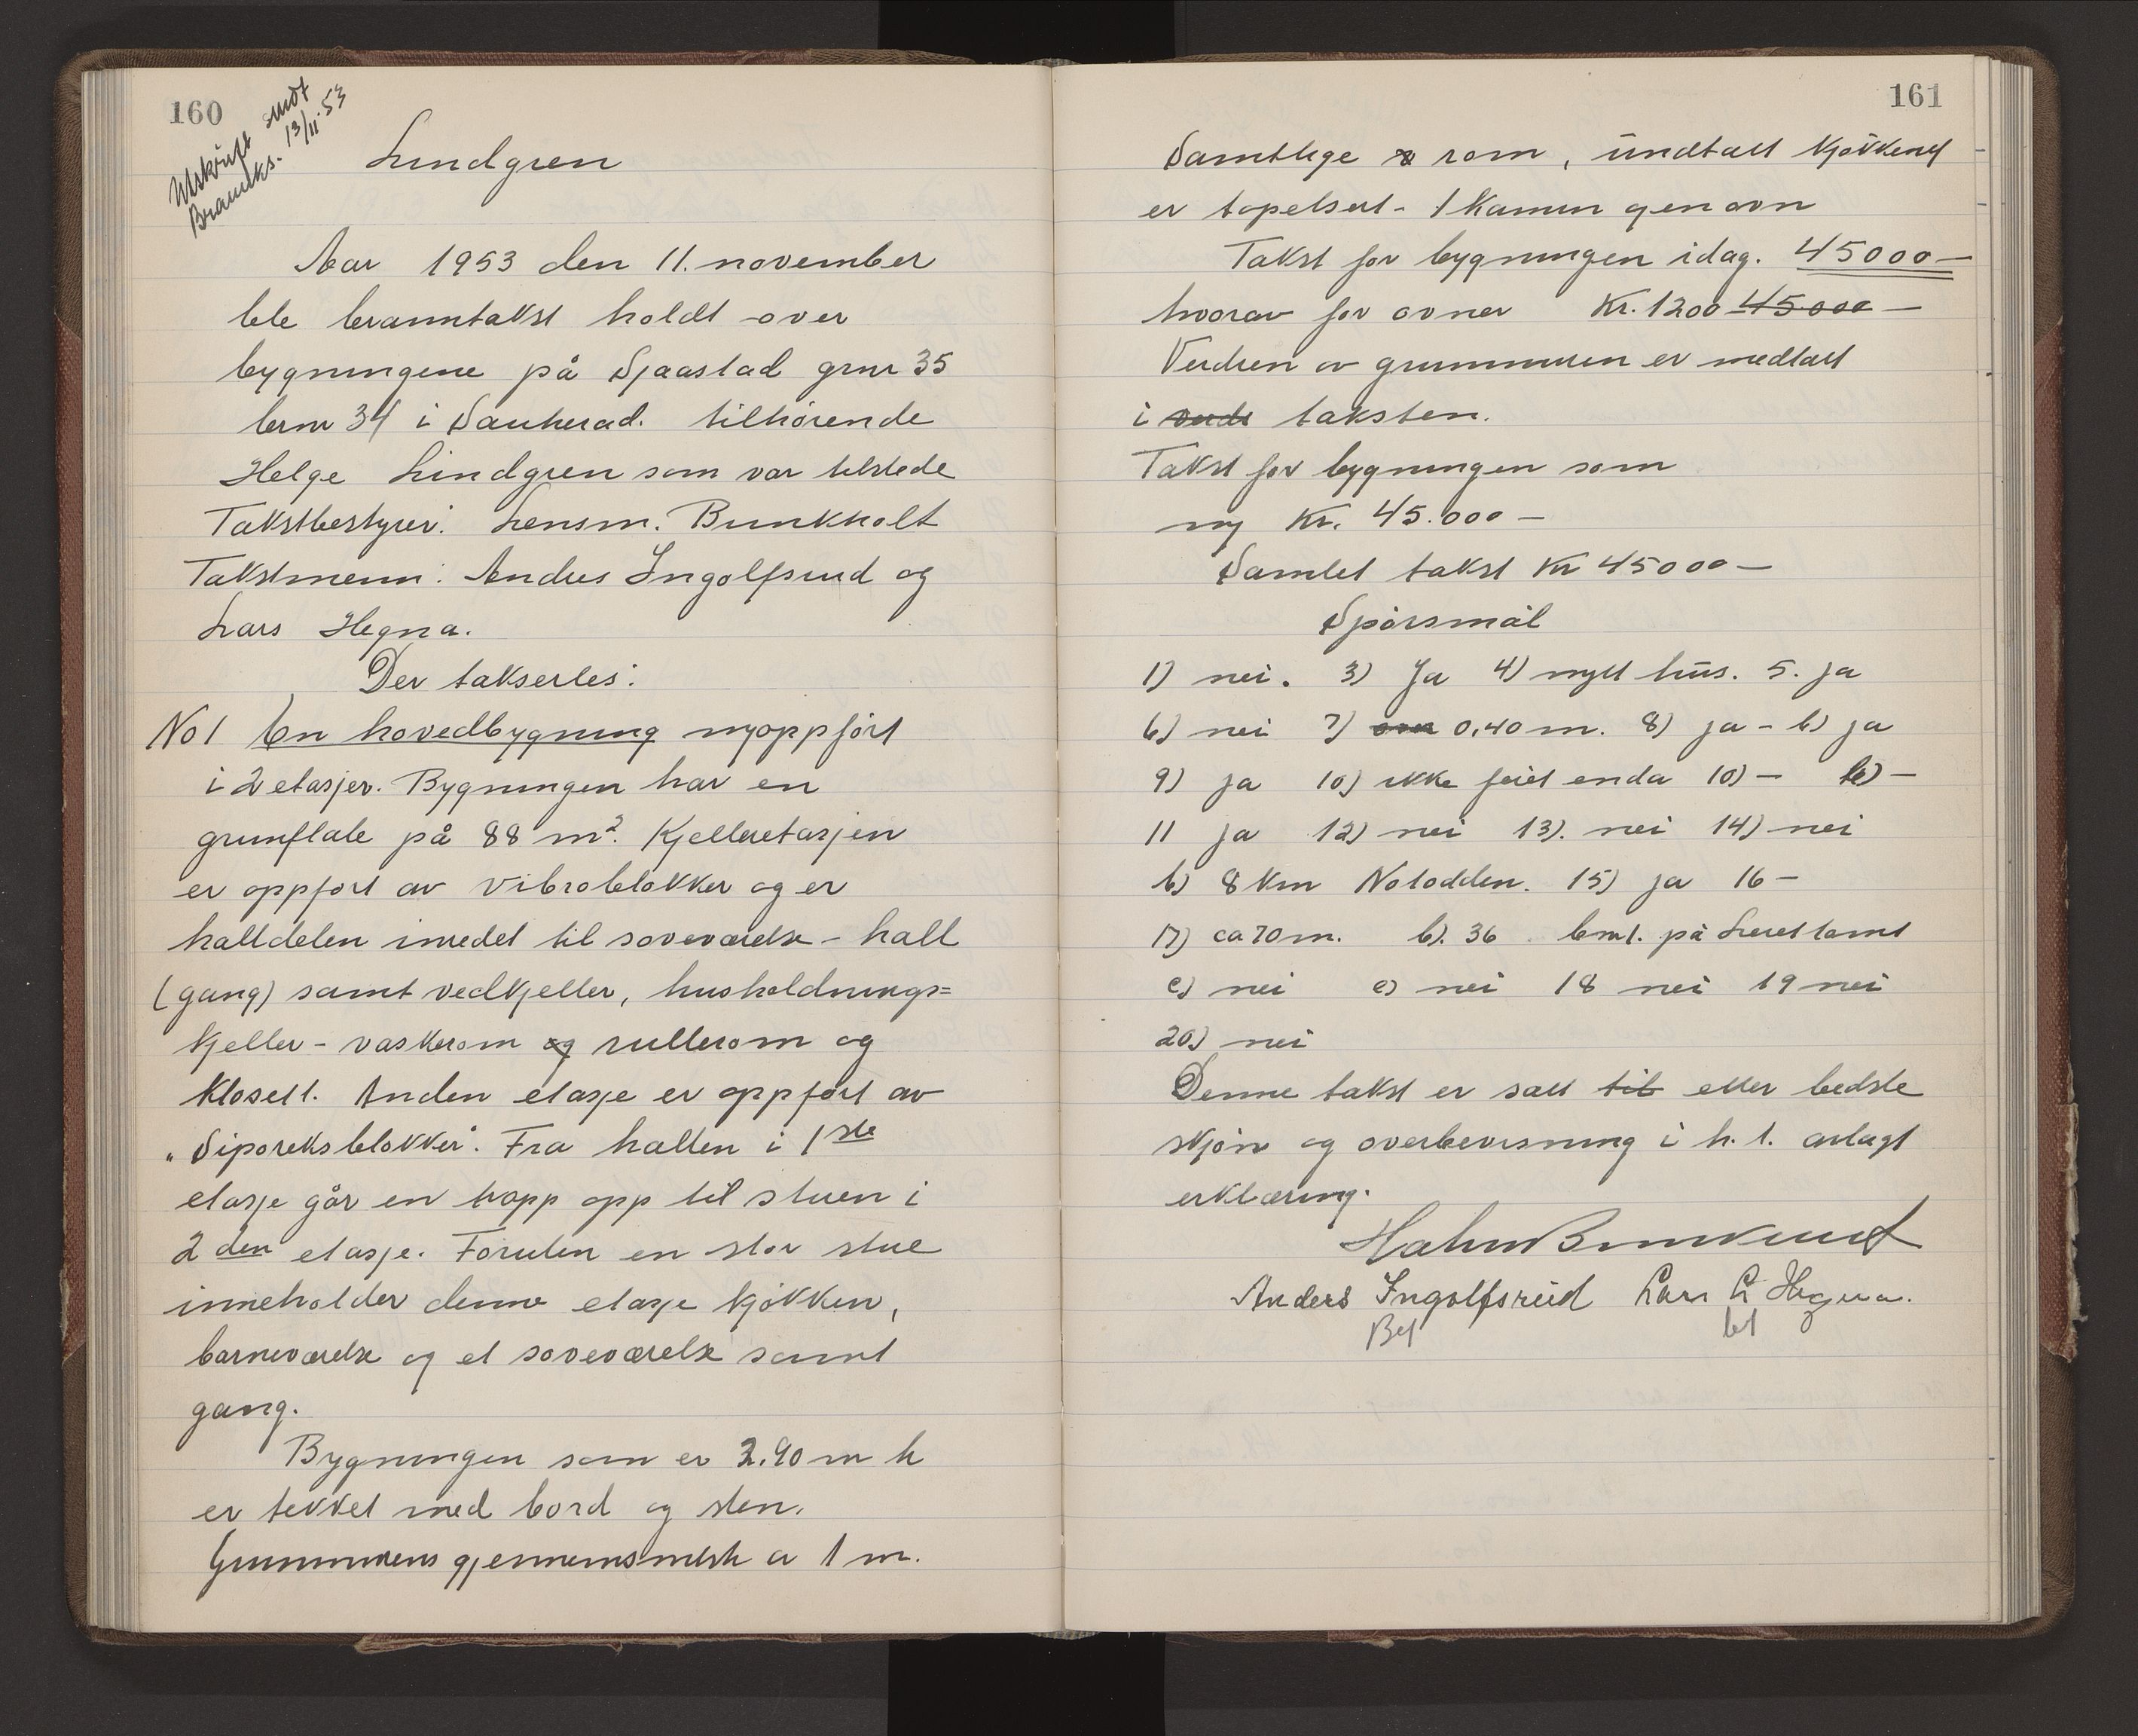 160
Utskrift sendt
Brannks. 13/11.53
Lindgren
Aar 1953 den 11. november
ble branntakst holdt over
bygningene på Sjaastad grnr 35
brnr 34 i Sauherad. tilhørende
Helge Lindgren som var tilstede
Takstbestyrer: Lensm. Bunkholt
Takstmenn: Andres Ingolfsrud og
Lars Hegna.
Der takserles:
No 1 En hovedbygning nyoppført
i 2 etasjer. Bygningen har en
grunflate på 88 m². Kjelleretasjen
er oppført av vibroblokker og er
halldelen inredet til soveværelse - hall
(gang) samt vedkjeller, husholdnings=
kjeller - vaskerom og rullerom og
klosett. Anden etasje er oppført av
"Siporeksblokker". Fra hallen i 1ste
etasje går en trapp opp til stuen i
2den etasje. Foruten en stor stue
inneholder denne etasje kjøkken,
barneværelse og et soveværelse samt
gang.
Bygningen som er 2.90 m h
er tekket med bord og sten.
Grunnmurens gjennemsnitsh er 1 m.
161
Samtlige rom, undtatt kjøkkenet
er tapetsert - 1 kamin og en ovn
Takst for bygningen idag. 45000 —
hvorav for ovner Kr. 1200 45000 —
Verdien av grunnmuren er medtatt
i verdi taksten.
Takst for bygningen som
ny Kr. 45.000 —
Samlet takst Kr 45000 —
Spørsmål
1) nei. 3) Ja 4) nytt hus. 5. ja
6) nei 7) 0,40 m. 8) ja - b) ja
9) ja 10) ikke feiet enda 10) — b) —
11 ja 12) nei 13). nei 14) nei
b) 8 km Notodden. 15) ja 16 —
17) ca 70 m. b). 36 bmt. på Lerettomt
c) nei e) nei 18 nei 19 nei
20) nei
Denne takst er satt til etter bedste
skjøn og overbevisning i h. t. avlagt
erklæring.
Anders Ingolfsrud Lars L Hegna.
Bet bet